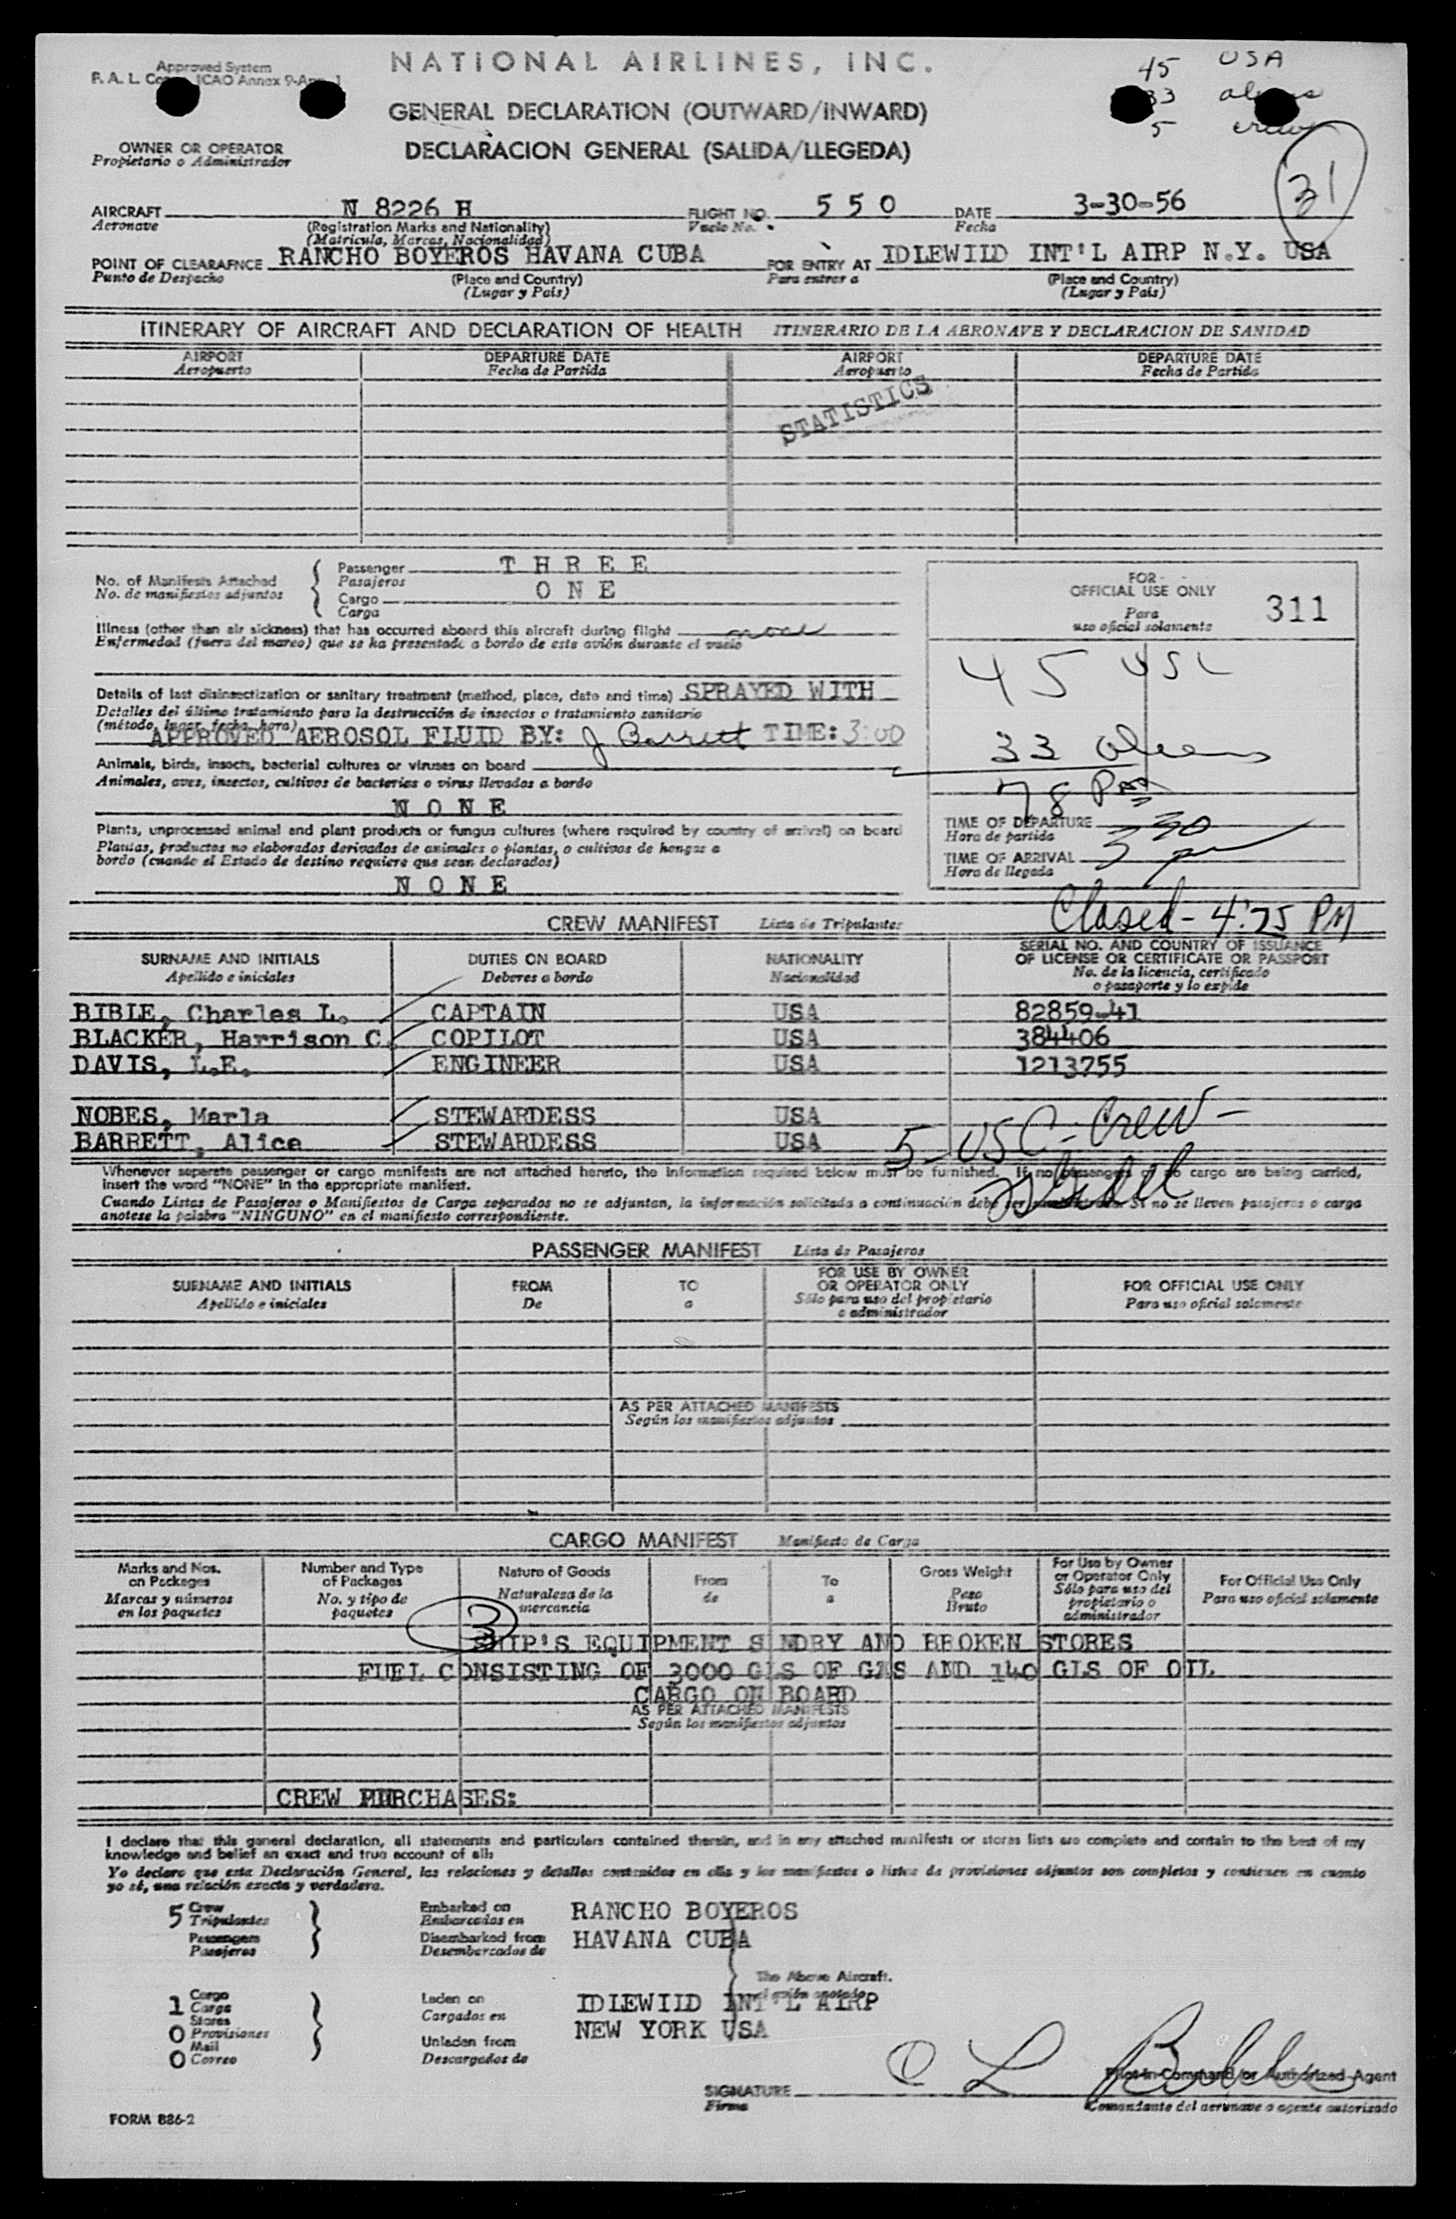 NATIONAL AIRLINES, INC.
Approved System
F. A. L. ICAO Annex 9-App. 1
GENERAL DECLARATION (OUTWARD/INWARD)
DECLARACION GENERAL (SALIDA/LLEGEDA)
45 USA
33 aliens
5 crew
31
OWNER OR OPERATOR
Propietario o Administrador
AIRCRAFT N 8226 H FLIGHT NO. 5 5 0 DATE 3-30-56
Aeronave (Registration Marks and Nationality) Vuelo No. Fecha
(Matricula, Marcas, Nacionalidad)
POINT OF CLEARAFNCE RANCHO BOYEROS HAVANA CUBA FOR ENTRY AT IDLEWILD INT'L AIRP N.Y. USA
Punto de Despacho (Place and Country) Para entrar a (Place and Country)
(Lugar y Pais) (Lugar y Pais)
ITINERARY OF AIRCRAFT AND DECLARATION OF HEALTH ITINERARIO DE LA AERONAVE Y DECLARACION DE SANIDAD
AIRPORT DEPARTURE DATE AIRPORT DEPARTURE DATE
Aeropuerto Fecha de Partida Aeropuerto Fecha de Partida
STATISTICS
No. of Manifests Attached
No. de manifiestos adjuntos
Passenger T H R E E
Pasajeros
Cargo O N E
Carga
Illness (other than air sickness) that has occurred aboard this aircraft during flight none
Enfermedad (fuera del mareo) que se ha presentado a bordo de este avión durante el vuelo
Details of last disinsectization or sanitary treatment (method, place, date and time) SPRAYED WITH
Detalles del último tratamiento para la destrucción de insectos o tratamiento sanitario
(método, lugar, fecha, hora)
APPROVED AEROSOL FLUID BY: J Barrett TIME: 3:00
Animals, birds, insects, bacterial cultures or viruses on board
Animales, aves, insectos, cultivos de bacterias o virus llevados a bordo
N O N E
Plants, unprocessed animal and plant products or fungus cultures (where required by country of arrival) on board
Plantas, productos no elaborados derivados de animales o plantas, o cultivos de hongos a
bordo (cuando el Estado de destino requiere que sean declarados)
N O N E
FOR
OFFICIAL USE ONLY
Para
uso oficial solamente
311
45 USC
33 Aliens
78 Pass
TIME OF DEPARTURE
Hora de partida
TIME OF ARRIVAL 3 30 pm
Hora de llegada
Closed - 4:25 PM
CREW MANIFEST Lista de Tripulantes
SURNAME AND INITIALS DUTIES ON BOARD NATIONALITY SERIAL NO. AND COUNTRY OF ISSUANCE
OF LICENSE OR CERTIFICATE OR PASSPORT
Apellido e iniciales Deberes a bordo Nacionalidad No. de la licencia, certificado
o pasaporte y lo expide
BIBLE, Charles L. CAPTAIN USA 82859-41
BLACKER, Harrison C. COPILOT USA 384406
DAVIS, L.E. ENGINEER USA 1213755
NOBES, Marla STEWARDESS USA
BARRETT, Alice STEWARDESS USA
5 - USC - Crew -
Whenever separate passenger or cargo manifests are not attached hereto, the information required below must be furnished. If no passengers or no cargo are being carried,
insert the word "NONE" in the appropriate manifest.
Cuando Listas de Pasajeros o Manifiestos de Carga separados no se adjuntan, la información solicitada a continuación debe ser Si no se lleven pasajeros o carga
anotese la palabra "NINGUNO" en el manifiesto correspondiente.
PASSENGER MANIFEST Lista de Pasajeros
SURNAME AND INITIALS FROM TO FOR USE BY OWNER
OR OPERATOR ONLY FOR OFFICIAL USE ONLY
Apellido e iniciales De a Sólo para uso del propietario
o administrador Para uso oficial solamente
AS PER ATTACHED MANIFESTS
Según los manifiestos adjuntos
CARGO MANIFEST Manifiesto de Carga
Marks and Nos.
on Packages
Marcas y números
en los paquetes
Number and Type
of Packages
No. y tipo de
paquetes
Nature of Goods
Naturaleza de la
mercancia
From
de
To
a
Gross Weight
Peso
Bruto
For Use by Owner
or Operator Only
Sólo para uso del
propietario o
administrador
For Official Use Only
Para uso oficial solamente
3
SHIP'S EQUIPMENT SUNDRY AND BROKEN STORES
FUEL CONSISTING OF 3000 GLS OF GAS AND 140 GLS OF OIL
CARGO ON BOARD
AS PER ATTACHED MANIFESTS
Según los manifiestos adjuntos
CREW PURCHASES:
I declare that this general declaration, all statements and particulars contained therein, and in any attached manifests or stores lists are complete and contain to the best of my
knowledge and belief an exact and true account of all:
Yo declaro que esta Declaración General, las relaciones y detalles contenidos en ella y los manifiestos o listas de provisiones adjuntos son completos y contienen en cuanto
yo sé, una relación exacta y verdadera.
5 Crew
Tripulantes
Passengers
Pasajeros
Embarked on
Embarcados en
Disembarked from
Desembarcados de
RANCHO BOYEROS
HAVANA CUBA
The Above Aircraft.
1 Cargo
Carga
0 Stores
Provisiones
0 Mail
Correo
Laden on
Cargados en
Unladen from
Descargados de
IDLEWILD INT'L AIRP
NEW YORK USA
SIGNATURE C L Bible
Firma
Pilot-in-Command or Authorized Agent
Comandante del aeronave o agente autorizado
FORM 886-2